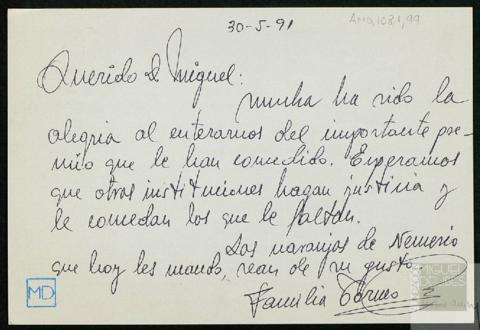 30-5-91
AMD,108,1,99
Querido D. Miguel:
Mucha ha sido la
alegria al enterarnos del importante pre-
mio que le han concedido. Esperamos
que otras instituciones hagan justicia y
le concedan los que le faltan.
Las naranjas de Nemesio
que hoy les mando, sean de su gusto
Familia Torres
MD